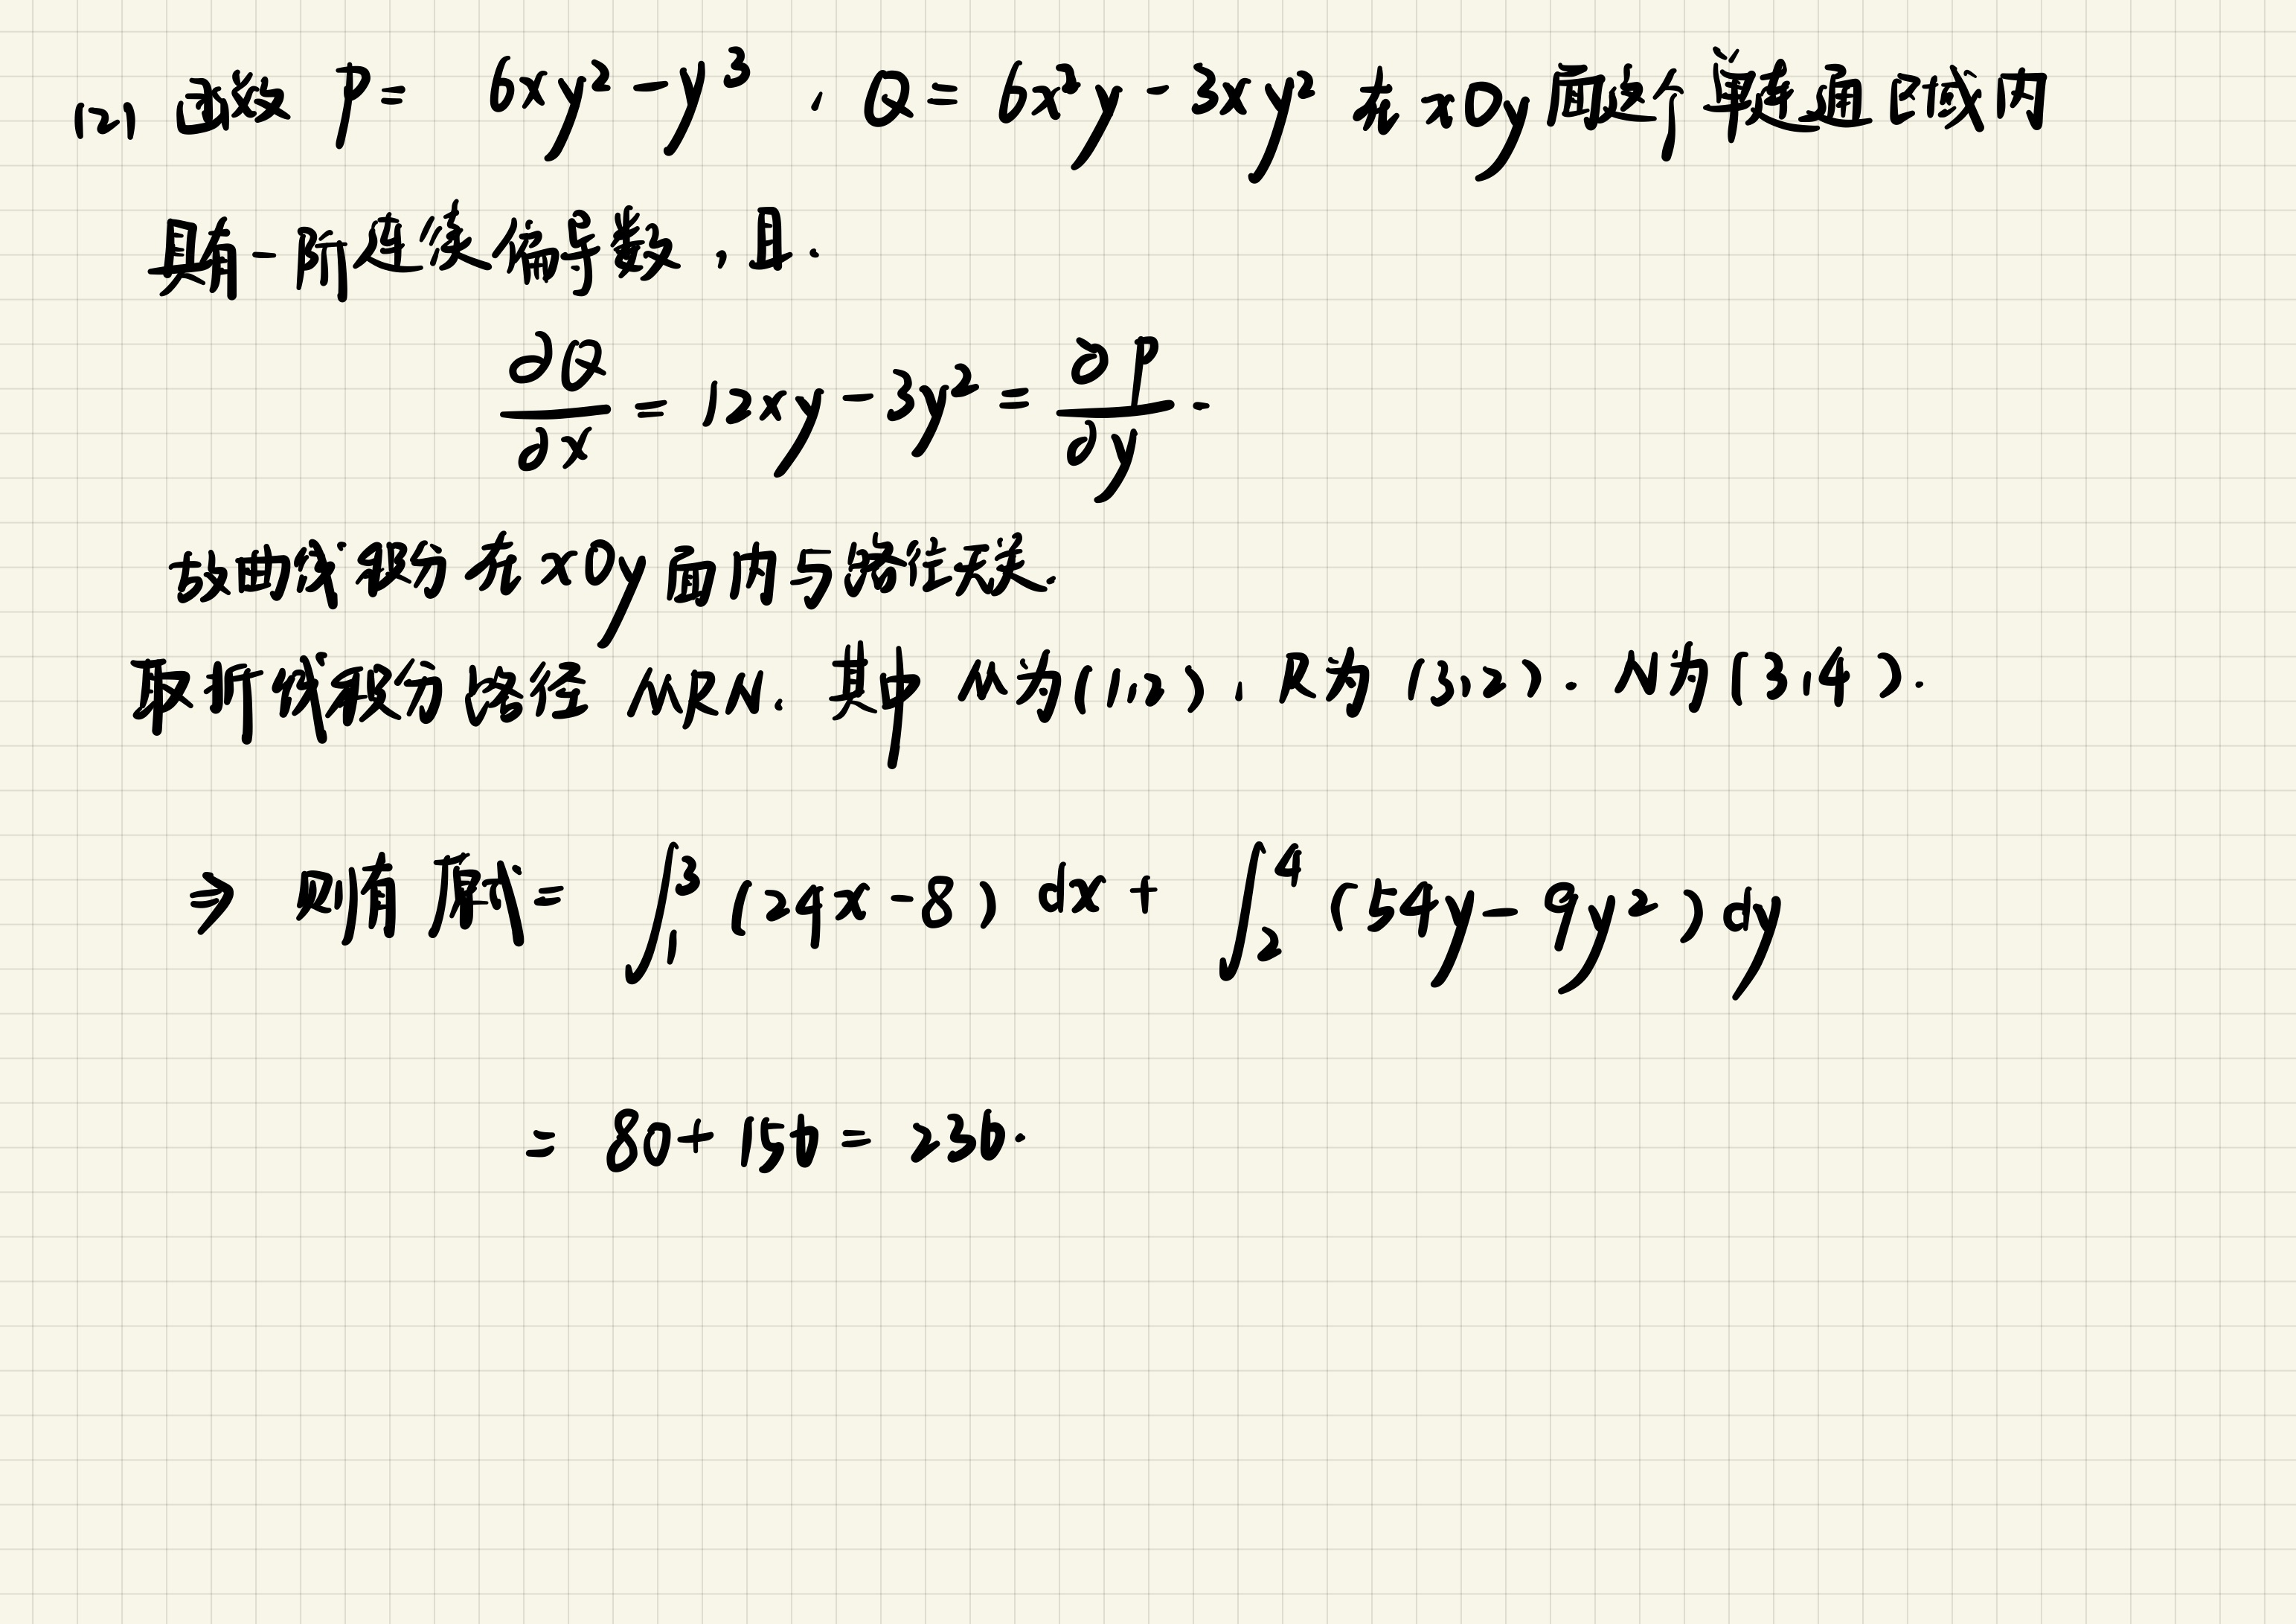 (2) 函数 P = 6xy² - y³ , Q = 6x²y - 3xy² 在 xOy 面这个单连通区域内
具有一阶连续偏导数,且.
∂Q/∂x = 12xy - 3y² = ∂P/∂y .
故曲线积分在 xOy 面内与路径无关.
取折线积分路径 MRN. 其中 M为(1,2), R为(3,2). N为(3,4).
⇒ 则有 原式 = ∫₁³ (24x-8) dx + ∫₂⁴ (54y - 9y²) dy
= 80 + 156 = 236.